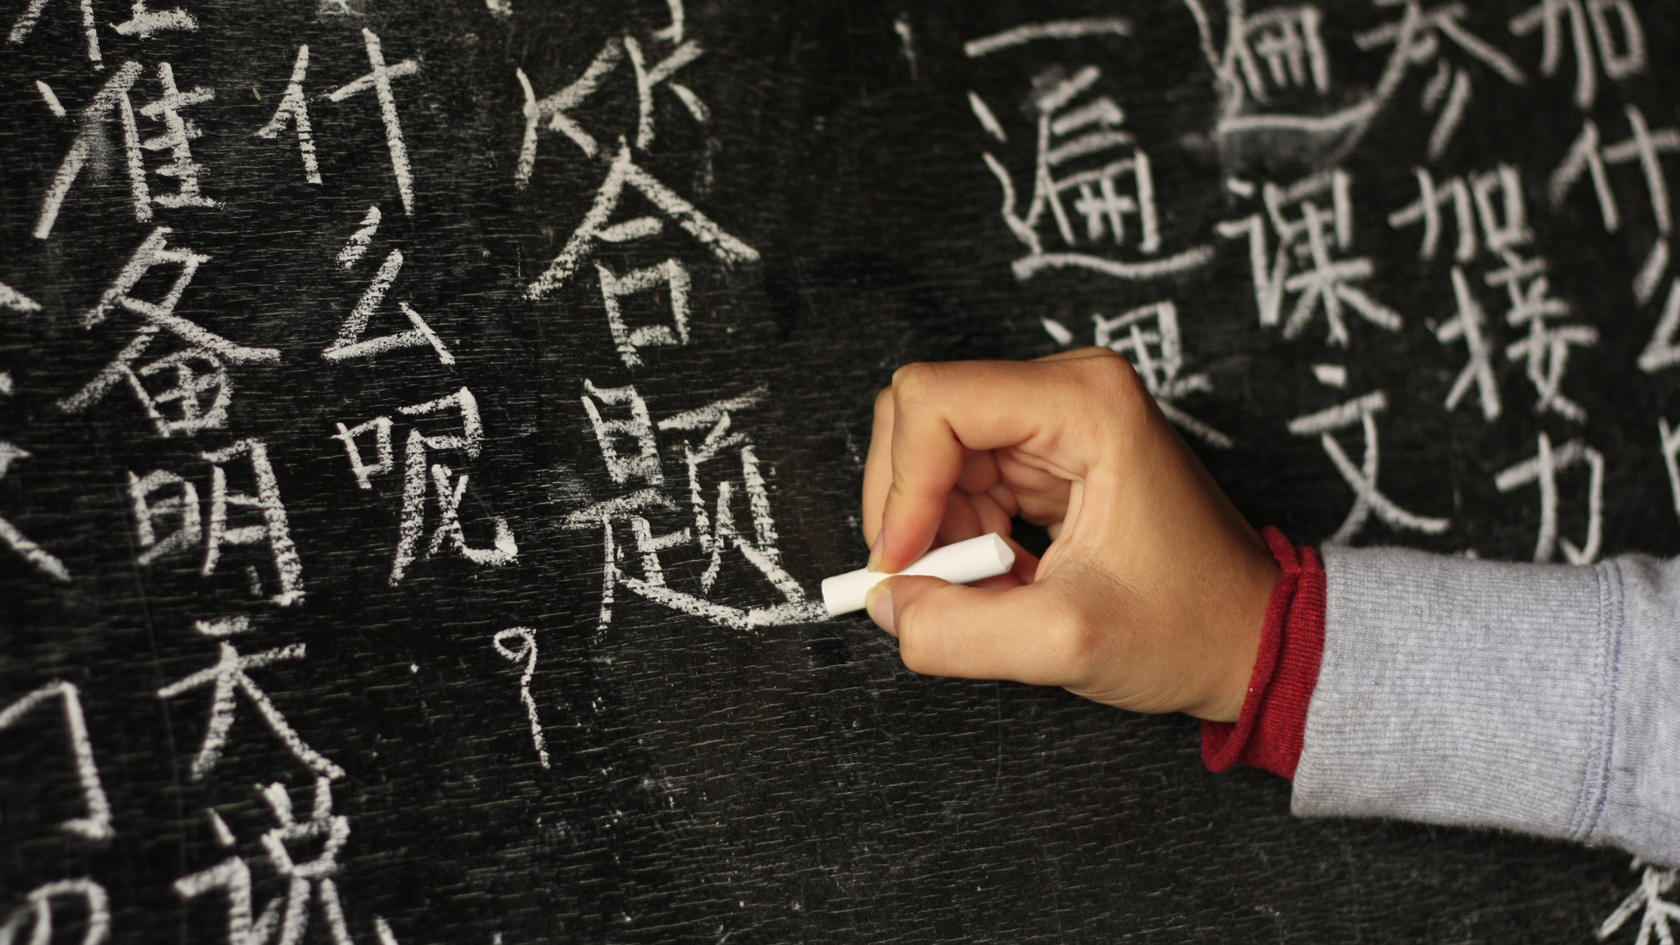 准备明天说
什么呢？
答题
一遍
遍课文
参加接力
加什